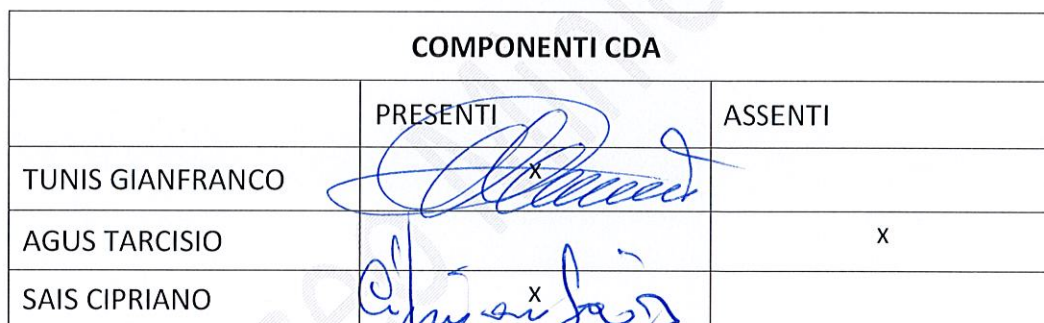 COMPONENTI CDA
PRESENTI ASSENTI
TUNIS GIANFRANCO X
AGUS TARCISIO X
SAIS CIPRIANO X
Cipriano Sais